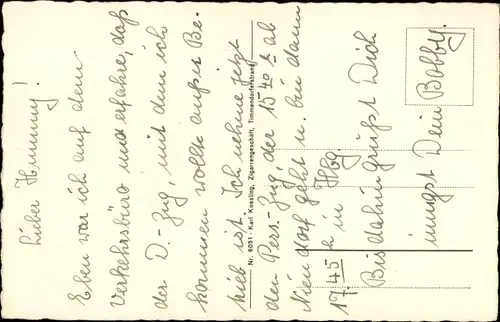 Lieber Hummy!
Eben war ich auf dem
Verkehrsbüro und erfahre, daß
der D.-Zug, mit dem ich
kommen wollte außer Be-
trieb ist. Ich nehme jetzt
den Pers.-Zug der 15 40 h ab
Niendorf geht u. bin dann
17.45 h in Hbg.
Bis dahin grüßt Dich
innigst Dein Bobby.
Nr. 6051 - Karl Koesling, Zigarrengeschäft, Timmendorferstrand